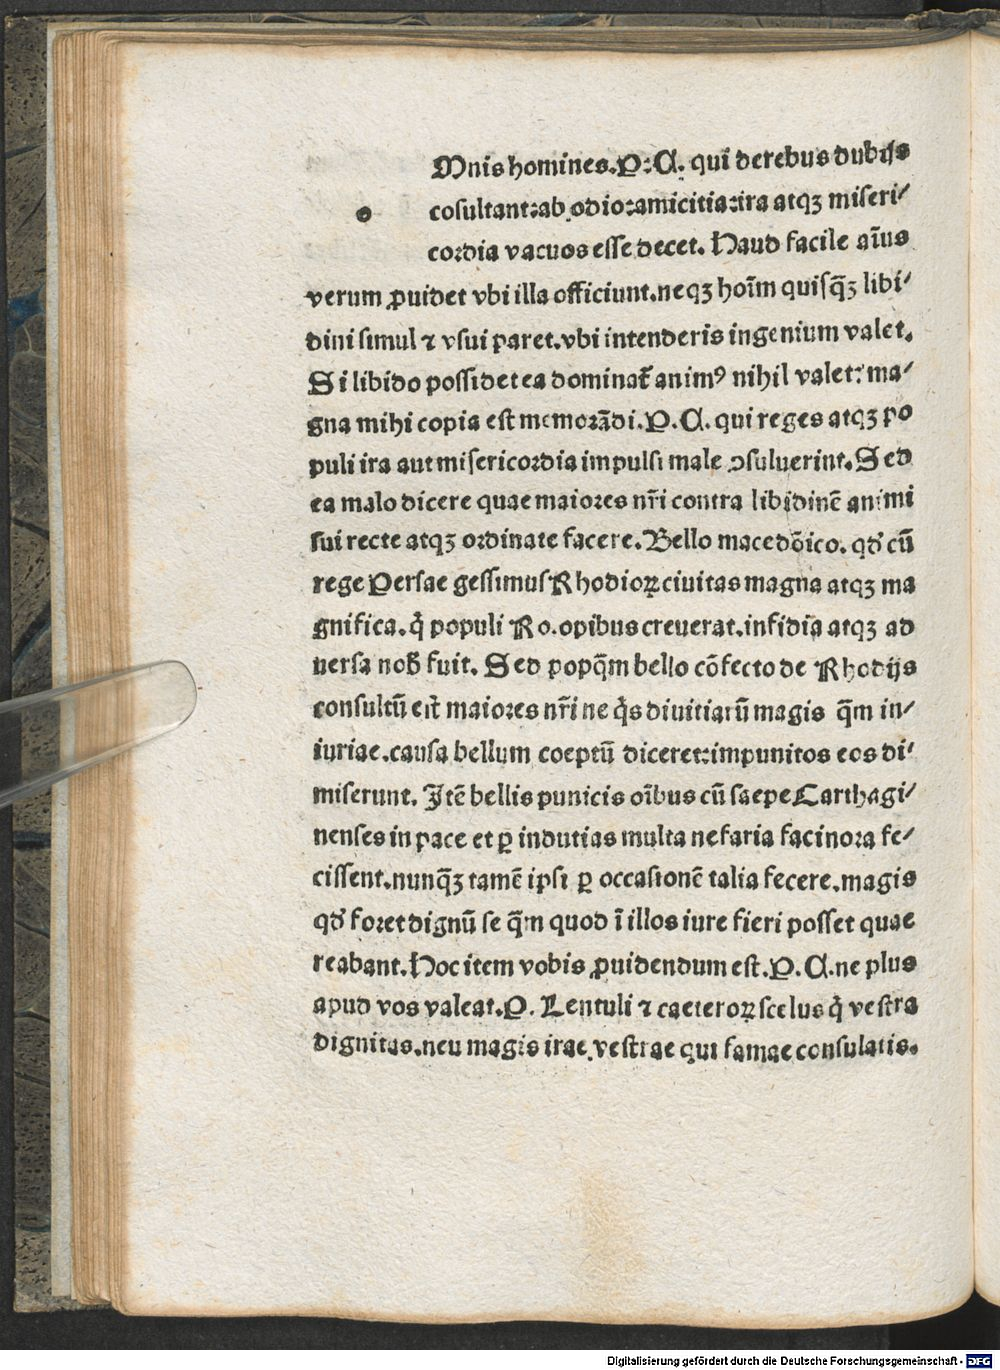 Mnis homines.P:C. qui de rebus dubijs
o cosultant:ab odio:amicitia:ira atqꝫ miseri/
cordia vacuos esse decet. Haud facile aīus
verum ꝓuidet vbi illa officiunt.neqꝫ hoīm quisq̄ꝫ libi/
dini simul ⁊ vsui paret.vbi intenderis ingenium valet.
Si libido possidet ea dominat᷑ animꝰ nihil valet: ma/
gna mihi copia est memorādi.P.C. qui reges atqꝫ po
puli ira aut misericordia impulsi male ↄsuluerint.Sed
ea malo dicere quae maiores nr̄i contra libidinē animi
sui recte atqꝫ ordinate facere. Bello macedōico. qd' cū
rege Persae gessimus Rhodioꝝ ciuitas magna atqꝫ ma
gnifica. q̇ populi Ro.opibus creuerat.infidīa atqꝫ ad
uersa nob̄ fuit. Sed popq̄m bello cōfecto de Rhodijs
consultū est maiores nr̄i ne q̇s diuitiarū magis q̄m in/
iuriae.causa bellum coeptū diceret:impunitos eos di/
miserunt. Itē bellis punicis oībus cū saepe Carthagi/
nenses in pace et ꝑ indutias multa nefaria facinora fe/
cissent.nunq̄ꝫ tamē ipsi ꝑ occasionē talia fecere.magis
qd' foret dignū se q̄m quod ī illos iure fieri posset quae
reabant.Hoc item vobis ꝓuidendum est.P.C.ne plus
apud vos valeat.P. Lentuli ⁊ caeteroꝝ scelus q̇ vestra
dignitas.neu magis irae vestrae qui famae consulatis.
Digitalisierung gefördert durch die Deutsche Forschungsgemeinschaft - DFG